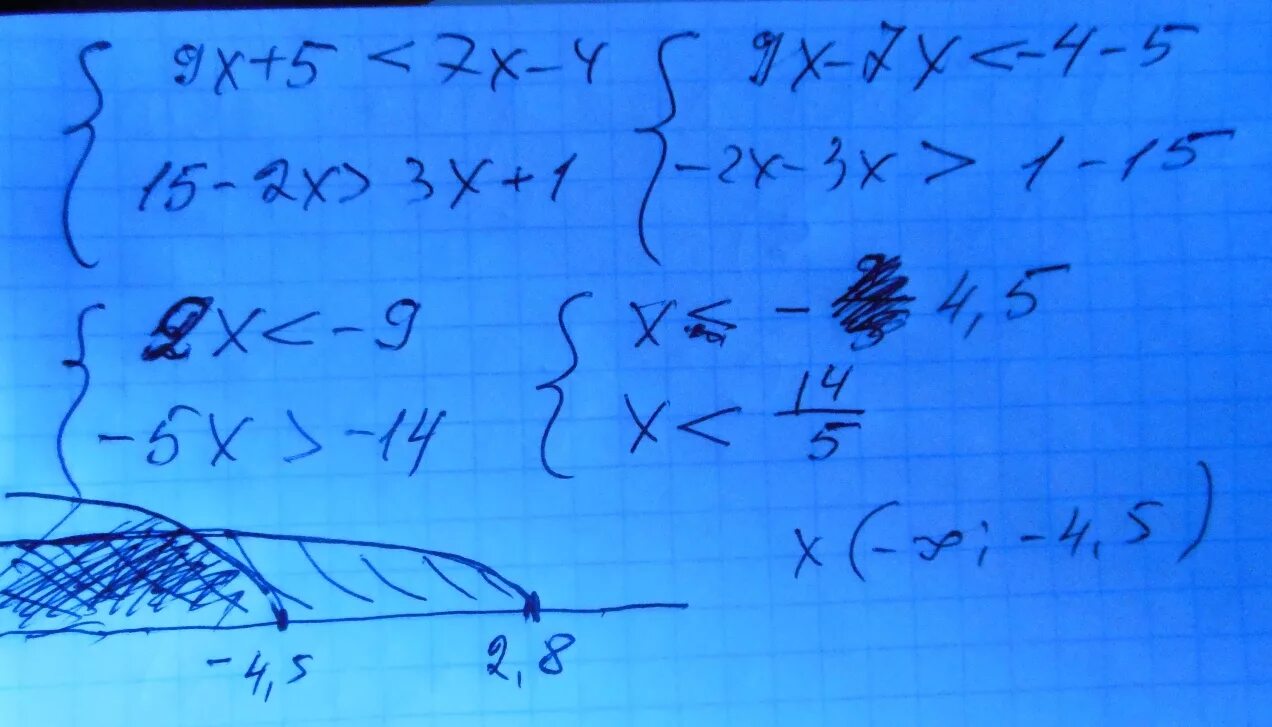 { 9x+5 < 7x-4
15-2x > 3x+1
{ 9x-7x < -4-5
-2x-3x > 1-15
{ 2x < -9
-5x > -14
{ x < - 4,5
x < 14/5
x (-∞; -4,5)
-4,5 2,8